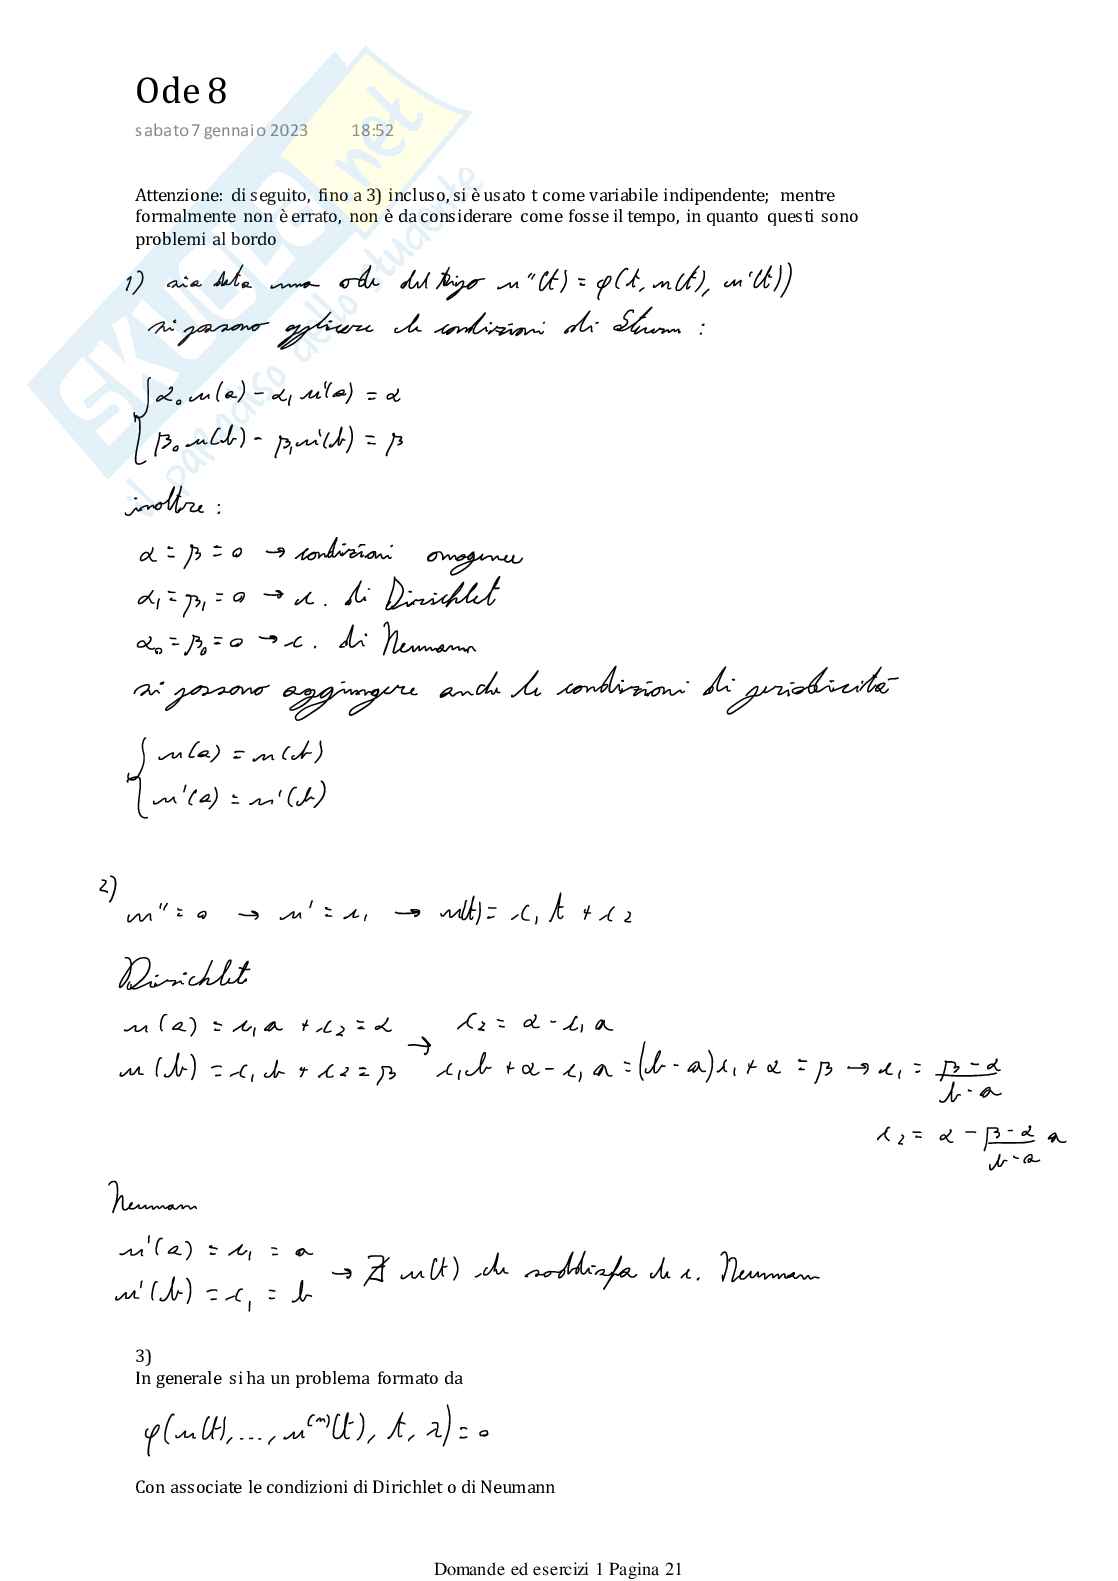 Ode 8
sabato 7 gennaio 2023 18:52
SKUOLA.net
il paradiso dello studente
Attenzione: di seguito, fino a 3) incluso, si è usato t come variabile indipendente; mentre
formalmente non è errato, non è da considerare come fosse il tempo, in quanto questi sono
problemi al bordo
1) sia data una ode del tipo u''(t) = φ(t, u(t), u'(t))
si possono applicare le condizioni di Sturm :
α₀ u(a) - α₁ u'(a) = α
β₀ u(b) - β₁ u'(b) = β
inoltre :
α = β = 0 → condizioni omogenee
α₁ = β₁ = 0 → c. di Dirichlet
α₀ = β₀ = 0 → c. di Neumann
si possono aggiungere anche le condizioni di periodicità
u(a) = u(b)
u'(a) = u'(b)
2)
u'' = 0 → u' = c₁ → u(t) = c₁ t + c₂
Dirichlet
u(a) = c₁ a + c₂ = α → c₂ = α - c₁ a
u(b) = c₁ b + c₂ = β c₁ b + α - c₁ a = (b - a) c₁ + α = β → c₁ = (β - α)/(b - a)
c₂ = α - (β - α)/(b - a) a
Neumann
u'(a) = c₁ = a
u'(b) = c₁ = b → ∄ u(t) che soddisfa le c. Neumann
3)
In generale si ha un problema formato da
φ(u(t), ..., u⁽ⁿ⁾(t), t, λ) = 0
Con associate le condizioni di Dirichlet o di Neumann
Domande ed esercizi 1 Pagina 21